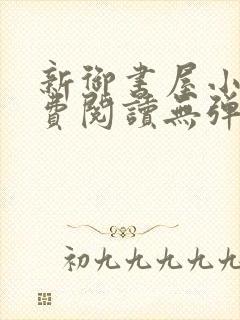 新御书屋小
费阅读无弹
初九九九九九